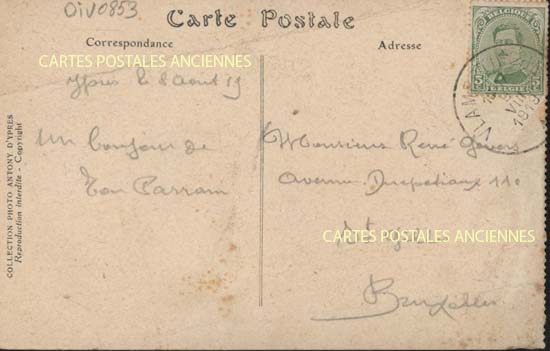 Oiv0853
Carte Postale
Correspondance
Adresse
CARTES POSTALES ANCIENNES
Ypres le 8 Aout 19
Un bonjour de
ton Parrain
Monsieur René Gevers
Avenue Ducpétiaux 110
St Gilles
CARTES POSTALES ANCIENNES
Bruxelles
COLLECTION PHOTO ANTONY D'YPRES
Reproduction interdite - Copyright
BELGIQUE
5
BELGIE
VLAM
VIII
1919